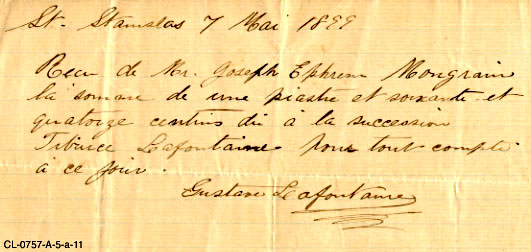 St. Stanislas 7 Mai 1899
Recu de Mr. Joseph Ephrem Mongrain
la somme de une piastre et soixante et
quatorze centins dû à la succession
Tiburce Lafontaine pour tout compte
à ce jour.
Gustave Lafontaine
CL-0757-A-5-a-11